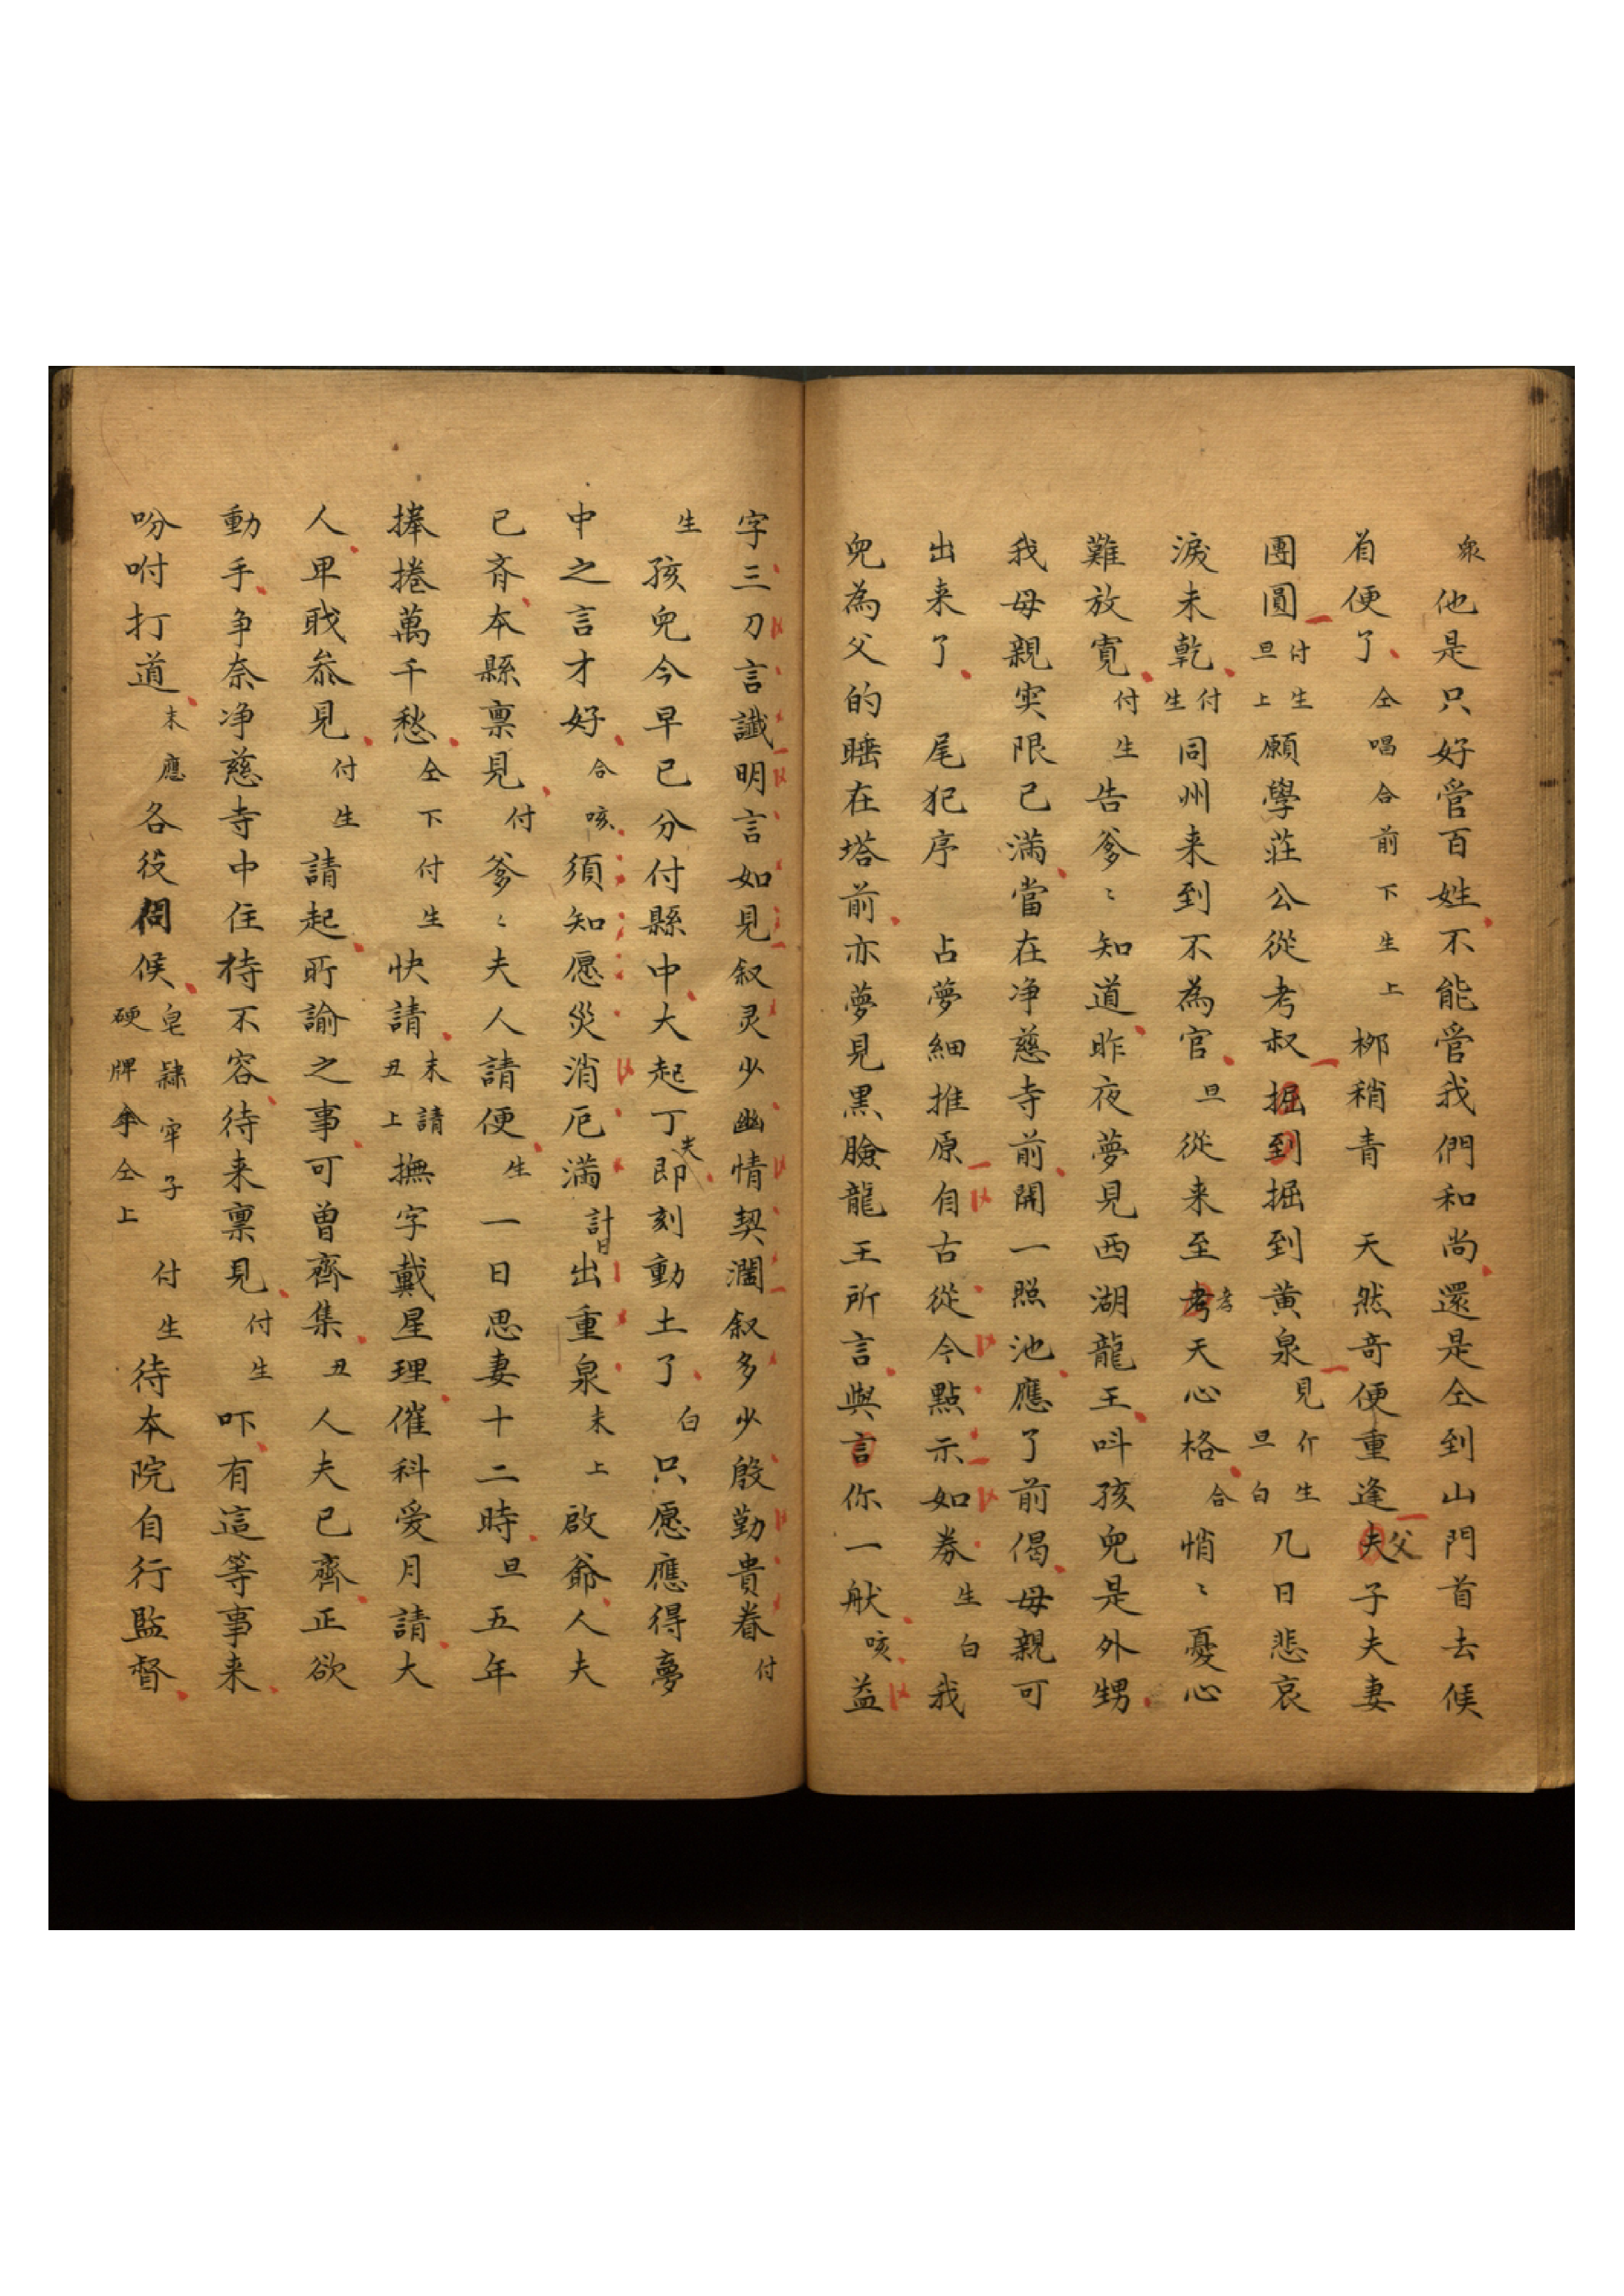 衆他是只好管百姓不能管我們和尚還是仝到山門首去候
着便了仝唱合前下生上梆稍青天然奇便重逢夫父子夫妻
團圓付生旦上願學莊公從考叔掘到掘到黄泉見介生旦白几日悲哀
淚未乾付生同州来到不為官旦從来至考孝天心格合悄〻憂心
難放寬付生告爹〻知道昨夜夢見西湖龍王呌孩兒是外甥
我母親灾限已滿當在净慈寺前開一照池應了前偈母親可
出来了尾犯序占夢細推原自古從今點示如券生白我
兒為父的睡在塔前亦夢見黑臉龍王所言與言你一般咳益
字三刀言讖明言如見叙灵少幽情契濶叙多少殷勤貴眷付
生孩兒今早已分付縣中大起丁夫即刻動土了白只愿應得夢
中之言才好合咳須知愿災消厄滿計日出重泉末上啟爺人夫
已齊本縣禀見付爹〻夫人請便生一日思妻十二時旦五年
捧捲萬千愁仝下付生快請末請丑上撫字戴星理催科爱月請大
人卑戝叅見付生請起所諭之事可曾齊集丑人夫已齊正欲
動手争奈净慈寺中住持不容待来禀見付生吓有這等事来
吩咐打道末應各役伺候皂隸牢子硬牌傘仝上付生待本院自行監督